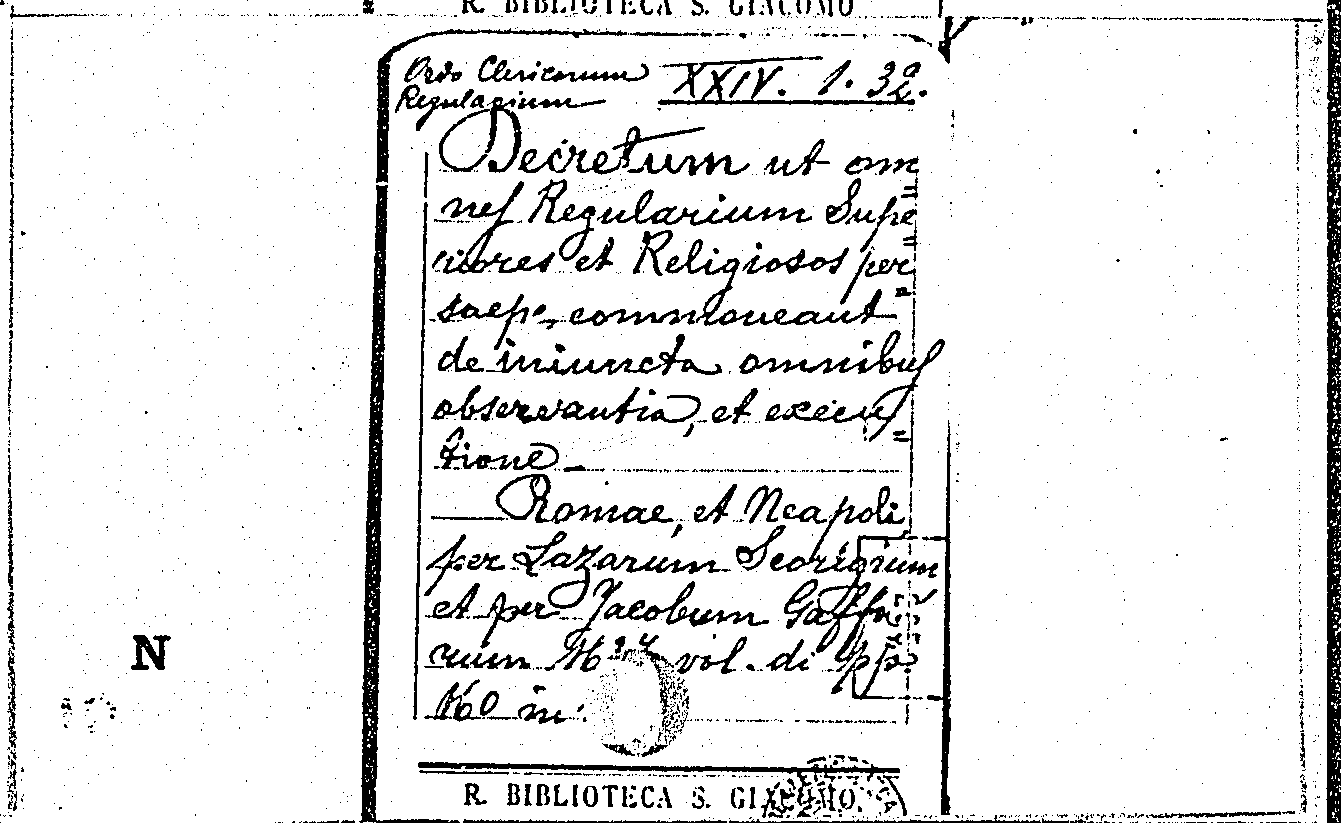 R. BIBLIOTECA S. GIACOMO
Ordo Clericorum XXIV. 1. 32.
Regularium
Decretum ut om=
nes Regularium Supe=
riores et Religiosos per=
saepe, commoveant
de iniuncta omnibus
observantia, et execu=
tione
Romae, et Neapoli
per Lazarum Scorigium
et per Jacobum Gaffa
rum vol. di pp.
160 in
N
R. BIBLIOTECA S. GIACOMO